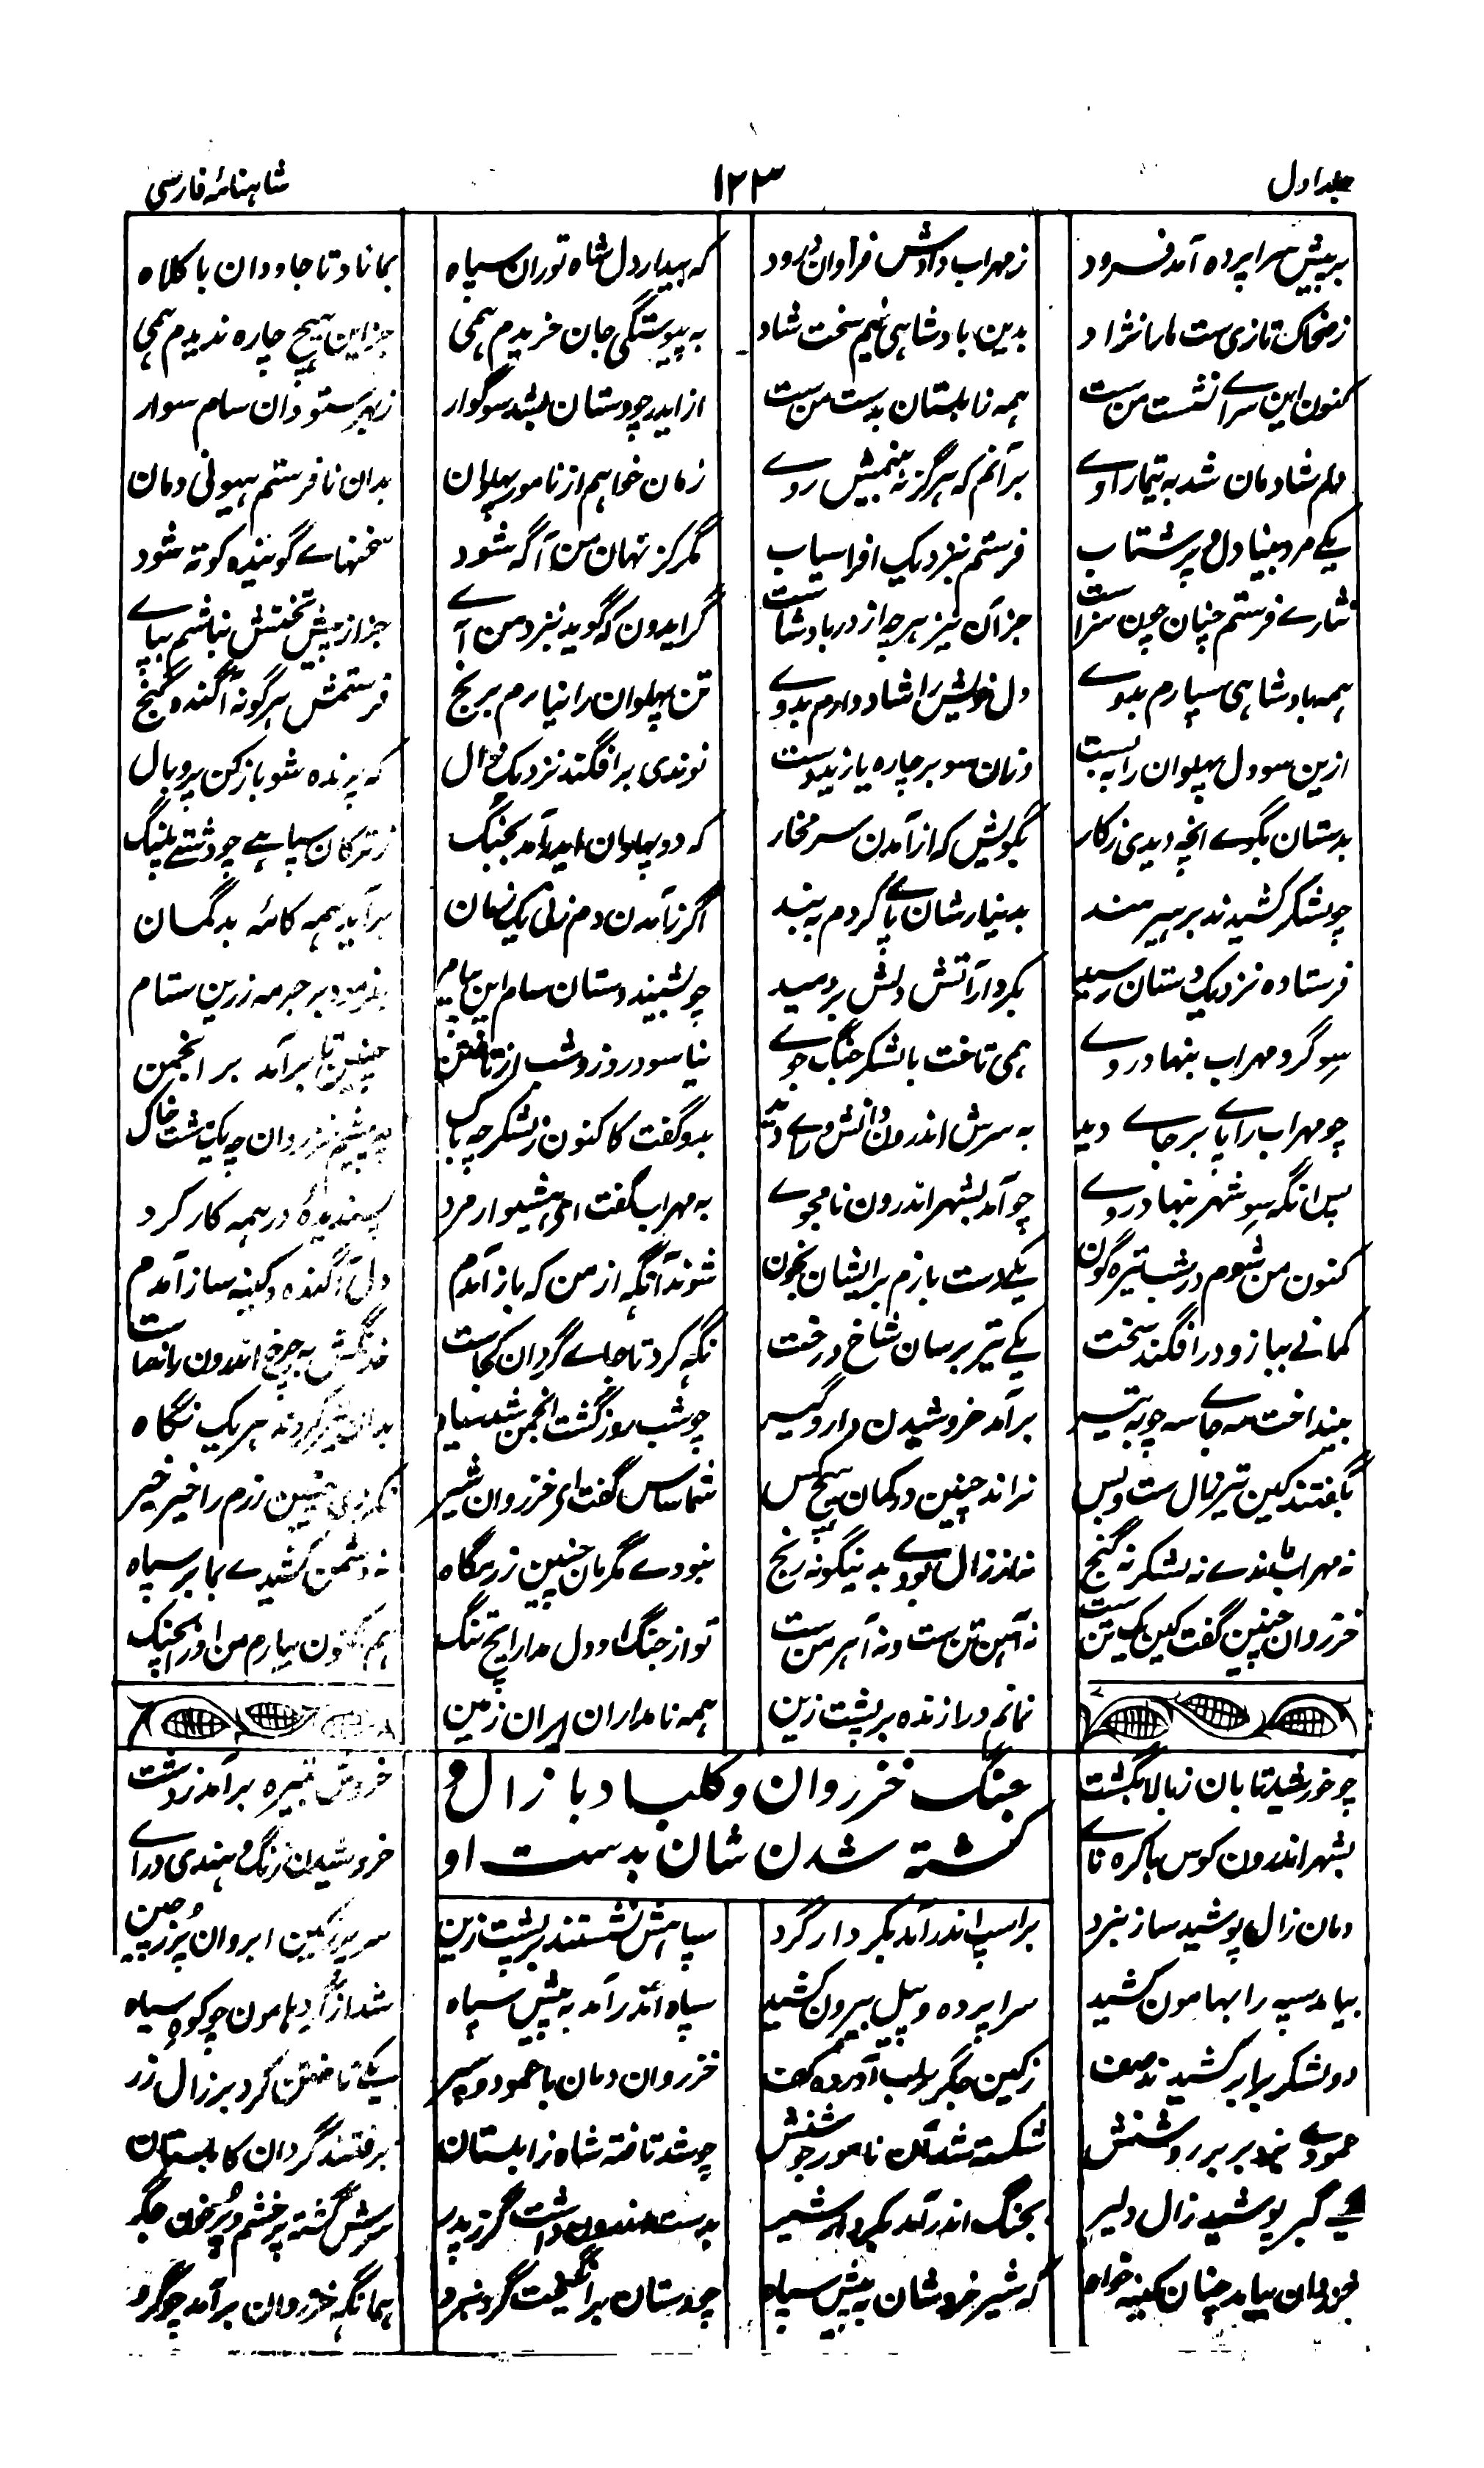 جلد اول ۱۲۳ شاهنامۂ فارسی
به پیش سراپرده آمد فرود ز مهراب دادش فراوان درود که بیدار دل شاه توران سپاه بماناد تا جاودان با کلاه
ز ضحاک تازی ست ما را نژاد بدین پادشاهی نیم سخت شاد به پیوستگی جان خریدم همی جز این هیچ چاره ندیدم همی
کنون این سرای نشست من ست همه زابلستان بدست من ست از ایدر چو دستان بشد سوگوار ز بهر ستودان سام سوار
دلم شادمان شد به تیمار اوے برآنم که هرگز نه بینمش روے زمان خواهم از نامور پهلوان بدان تا فرستم هیونی دمان
یکے مرد بینا دل پر شتاب فرستم نزدیک افراسیاب مگر کز نهان من آگه شود سخنهاے گوینده کوته شود
نثارے فرستم چنان چون سزاست جز آن نیز هر چه از در پادشاست گر ایدون که گوید بنزد من آے جز از پیش تختش نباشم بپاے
همه پادشاهی سپارم بدوے دل خویش را شاد دارم بدوے تن پهلوان را نیارم برنج فرستمش هر گونه آگنده گنج
ازین سو دل پهلوان را به بست وزان سو بر چاره یازید دست نوندی برافگند نزدیک زال که پرنده شو باز کن پر و بال
بدستان بگوے انچه دیدی ز کار بگویش که از آمدن سر مخار که دو پهلوان ایدر آمد بجنگ ز ترکان سپاهے چو دشتے پلنگ
چو لشکر کشیدند بر هیرمند بدینار شان پاے کردم به بند اگر ز آمدن دم زنی یک زمان برآید همه کامۂ بدگمان
فرستاده نزدیک دستان رسید بکردار آتش دلش بردمید چو بشنید دستان سام این پیام بفرمود بر جرمه زرین ستام
سوے گرد مهراب بنهاد روے همی تاخت با لشکر جنگ جوے نیاسود روز و شب از تاختن چنین تا برآمد بر انجمن
چو مهراب را پاے بر جاے دید به سرش اندرون دانش و راے دید بدو گفت کاکنون ز لشکر چه باک به پیشم خزروان چه یک مشت خاک
پس انگه سوے شهر بنهاد روے چو آمد بشهر اندرون نامجوے به مهراب گفت ای هشیوار مرد پسندیده در همه کار کرد
کنون من شوم در شب تیره گون یکے دست یازم بر ایشان بخون شوند آگه از من که باز آمدم دل آگنده و کینه ساز آمدم
کمانے ببازو در افگند سخت یکے تیر بر سان شاخ درخت نگه کرد تا جاے گردان کجاست خدنگش به چرخ اندرون راند راست
بینداخت سه جاے سه چوبه تیر برآمد خروشیدن دار و گیر چو شب روز گشت انجمن شد سپاه بدان تیر کردند هر یک نگاه
بگفتند کین تیر زال ست و بس نراند چنین در کمان هیچ کس شماساس گفت ای خزروان شیر نکردی چنین رزم را خیر خیر
نه مهراب ماندے نه لشکر نه گنج نه از زال بودے بدینگونه رنج نبودے مگر مان چنین رزمگاه نه دشمن کشیدے بما بر سپاه
خزروان چنین گفت کین یک تن ست نه آهن تن ست و نه آهرمن ست تو از جنگ او دل مدار ایچ تنگ هم اکنون بیارم من او را بچنگ
نمانم ورا زنده بر پشت زین همه نامداران ایران زمین
جنگ خزروان و کلباد با زال و
کشته شدن شان بدست او
چو خورشید تابان ز بالا بگشت خروش تبیره برآمد ز دشت
بشهر اندرون کوس با کره ناے خروشیدن زنگ و هندی دراے
دمان زال پوشید ساز نبرد بر اسپ اندر آمد بکردار گرد سپاهش نشستند بر پشت زین سر پر ز کین ابروان پر ز چین
بیامد سپه را بهامون کشید سراپرده و پیل بیرون کشید سپاه اندر آمد به پیش سپاه شد از گرد هامون چو کوه سیاه
دو لشکر برابر کشیدند صف ز کین جگر بر لب آورده کف خزروان دمان با عمود و سپر یکے تاختن کرد بر زال زر
عمودے بزد بر بر روشنش شکسته شد آن نامور جوشنش چو شد تافته شاه زابلستان برفتند گردان کابلستان
یکے گبر پوشید زال دلیر بجنگ اندر آمد بکردار شیر بدست اندرون داشت گرز پدر سرش گشته پر خشم و پر خون جگر
خزروان بیامد چنان کینه خواه که شیر خروشان به پیش سپاه چو دستان برانگیخت گرد نبرد همانگه خزروان برآمد چو گرد